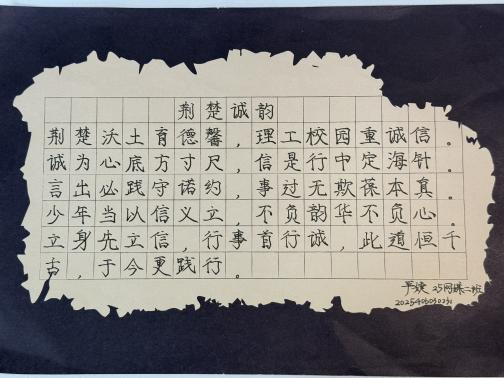 荆楚诚韵
荆楚沃土育德馨，理工校园重诚信。
诚为心底方寸尺，信是行中定海针。
言出必践守诺约，事过无欺葆本真。
少年当以信义立，不负韵华不负心。
立身先立信，行事首行诚，此道恒千
古，于今更践行。
25网媒二班